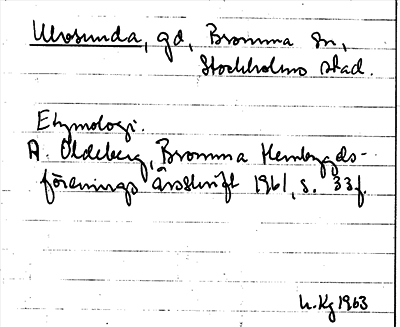 Ulvsunda, gd, Bromma sn,
Stockholms stad.
Etymologi.
A. Oldeberg, Bromma Hembygds-
förenings årsskrift 1961, s. 33 f.
h. Kg 1963